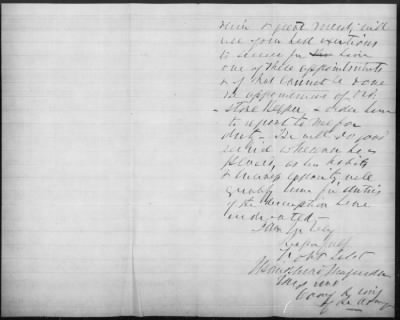 them & great merit will
use your best exertions
to secure for him
one of these appointments
& if that cannot be done
the appointment of Ord.
store keeper, & order him
to report to me for
duty - He will do good
service wherever he is
placed, as his habits
& business capacity will
qualify him for duties
of the description here
indicated -
I am
Yr obt Servt
Maj Genl
Comg
of the Army